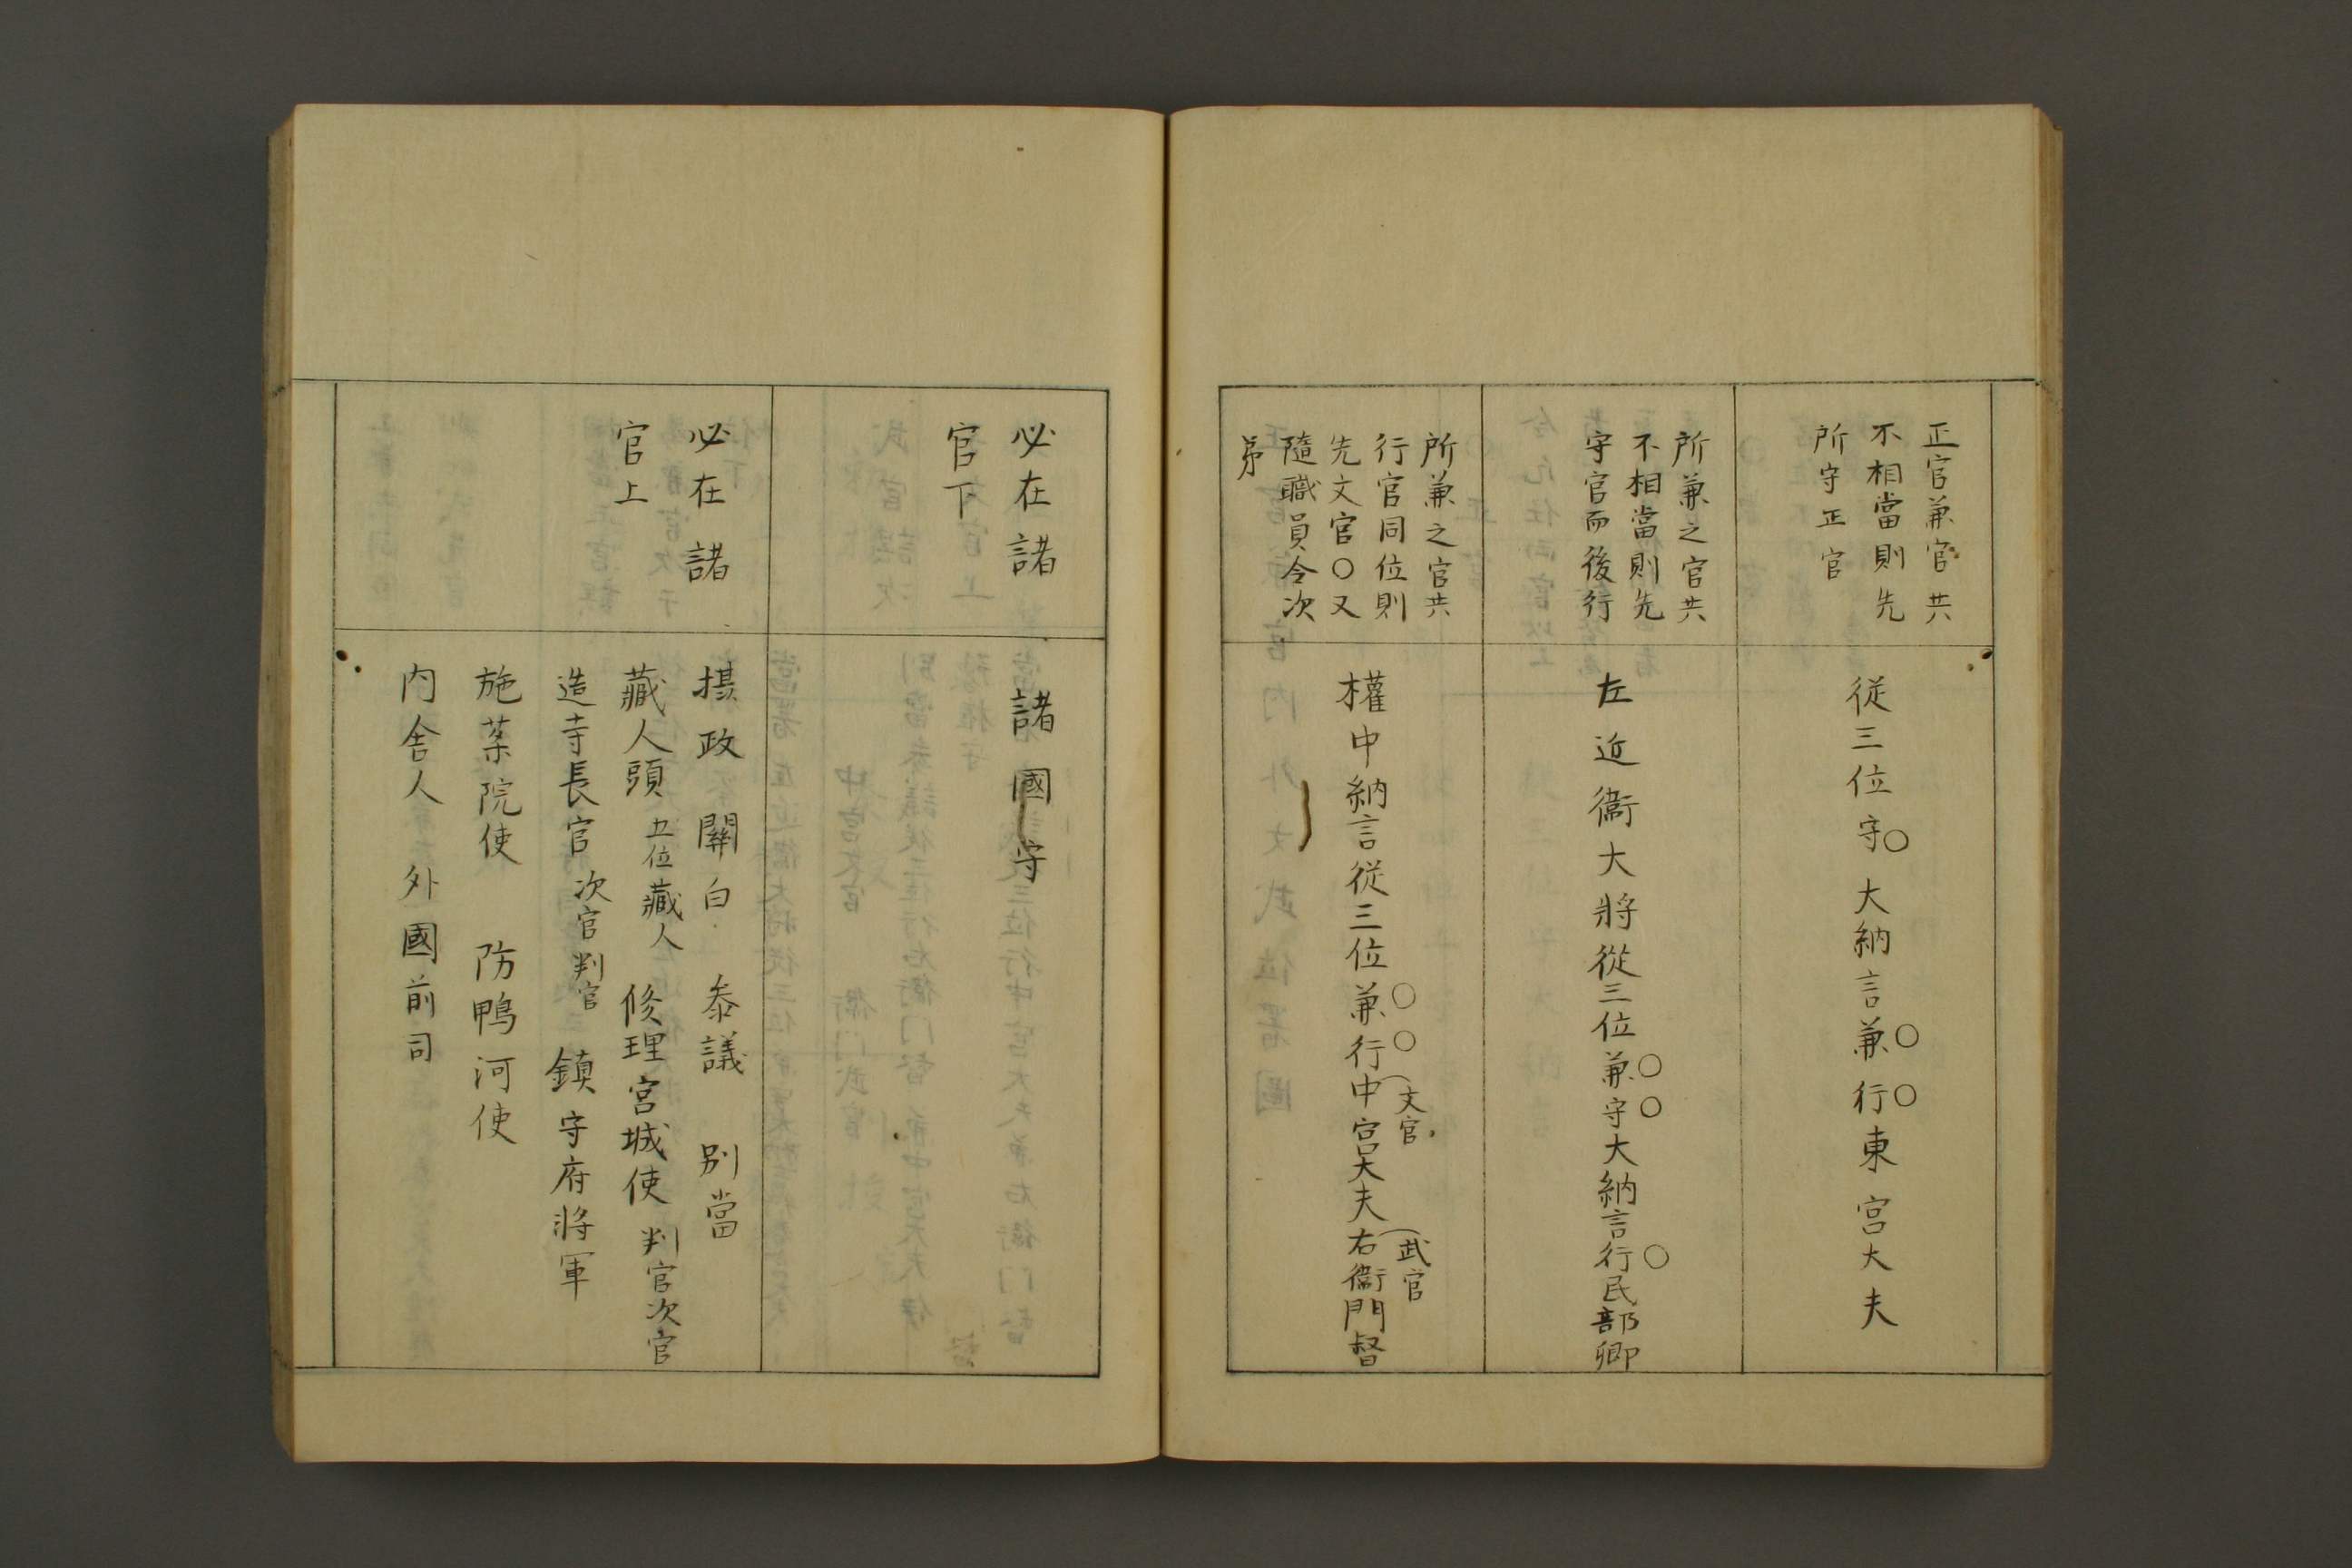 正官兼官共
不相當則先
所守正官
從三位守〇大納言兼〇行〇東宮大夫
所兼之官共
不相當則先
守官而後行
左近衞大將從三位兼〇守〇大納言行〇民部卿
所兼之官共
行官同位則
先文官〇又
隨職員令次
第
權中納言從三位兼〇行〇中宮大夫右衞門督
文官
武官
必在諸
官下
諸國守
必在諸
官上
摂政 關白 叅議 別當
藏人頭 五位藏人 修理宮城使 判官次官
造寺長官 次官判官 鎮守府將軍
施藥院使 防鴨河使
内舍人 外國前司